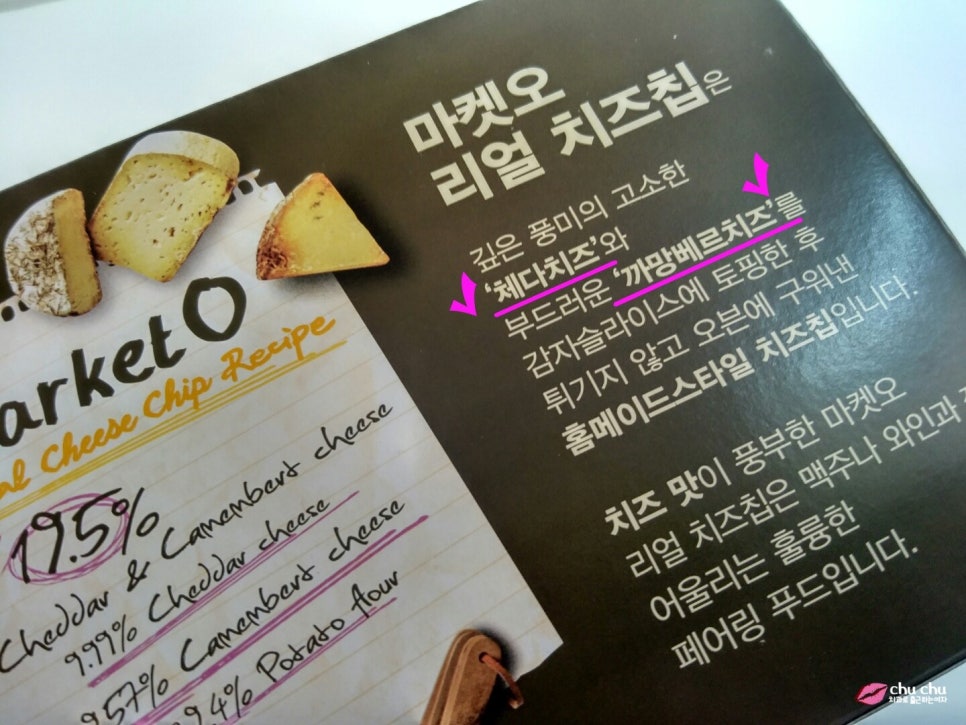 마켓오
리얼 치즈칩은
깊은 풍미의 고소한
'체다치즈'와
부드러운 '까망베르치즈'를
감자슬라이스에 토핑한 후
튀기지 않고 오븐에 구워낸
홈메이드스타일 치즈칩입니다.
치즈 맛이 풍부한 마켓오
리얼 치즈칩은 맥주나 와인과
어울리는 훌륭한
페어링 푸드입니다.
arket O
al Cheese Chip Recipe
19.5%
Cheddar & Camembert cheese
9.99% Cheddar cheese
9.57% Camembert cheese
Potato flour
chu chu